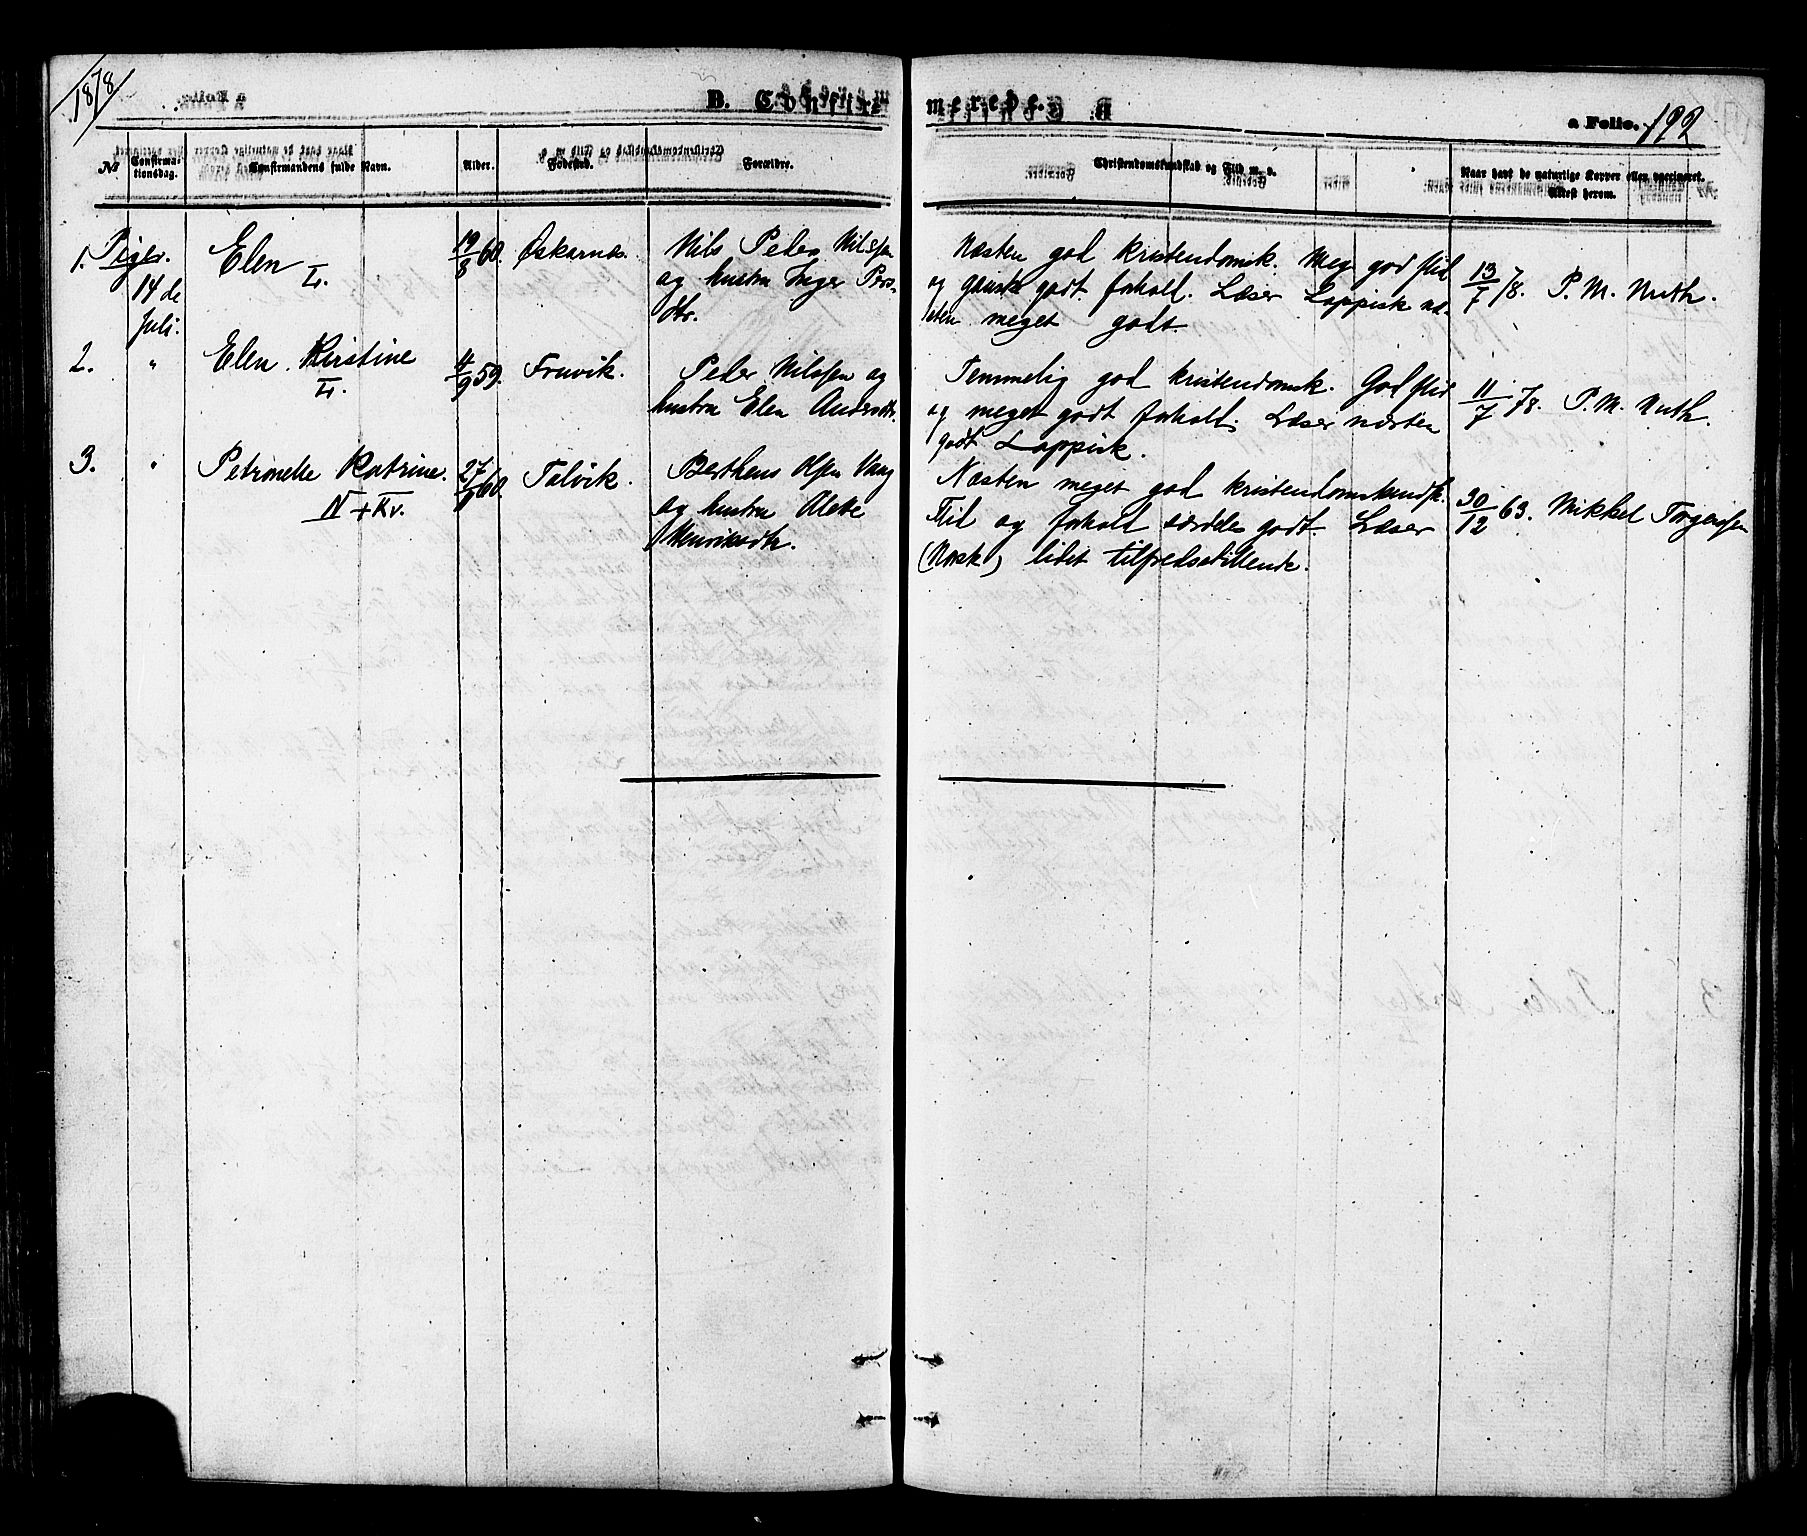 1878
B. Confirmerede.
a Folio. 192
No
Confirma-
tionsdag.
Confirmandens fulde Navn.
Alder.
Fødested.
Forældre.
Christendomskundskab og Flid m. v.
Naar havt de naturlige Kopper eller vaccineret.
Attest herom.
1. Piger.
14 de
Juli.
Elen
L.
19/8 60.
Øskarnæs.
Nils Peder Nilssen
og hustru Inger Pers-
dtr.
Næsten god kristendomsk. Meg. god flid
og ganske godt forhold. Læser Lappisk næ-
sten meget godt.
13/7 78. P. M. Nuth.
2. "
Elen Kirstine
L.
4/9 59.
Fruvik.
Peder Nilssen og
hustru Elen Andersdtr.
Temmelig god kristendomsk. God flid
og meget godt forhold. Læser næsten
godt Lappisk.
11/7 78. P. M. Nuth.
3. "
Petronelle Katrine.
N + Kv.
60.
Talvik.
Berthens Olsen Vaag
og hustru Alette
Henriksdtr.
Næsten meget god kristendomskundsk.
Flid og forhold særdeles godt. Læser
(Norsk) lidet tilfredsstillende.
30/12 63. Mikkel Torgersen